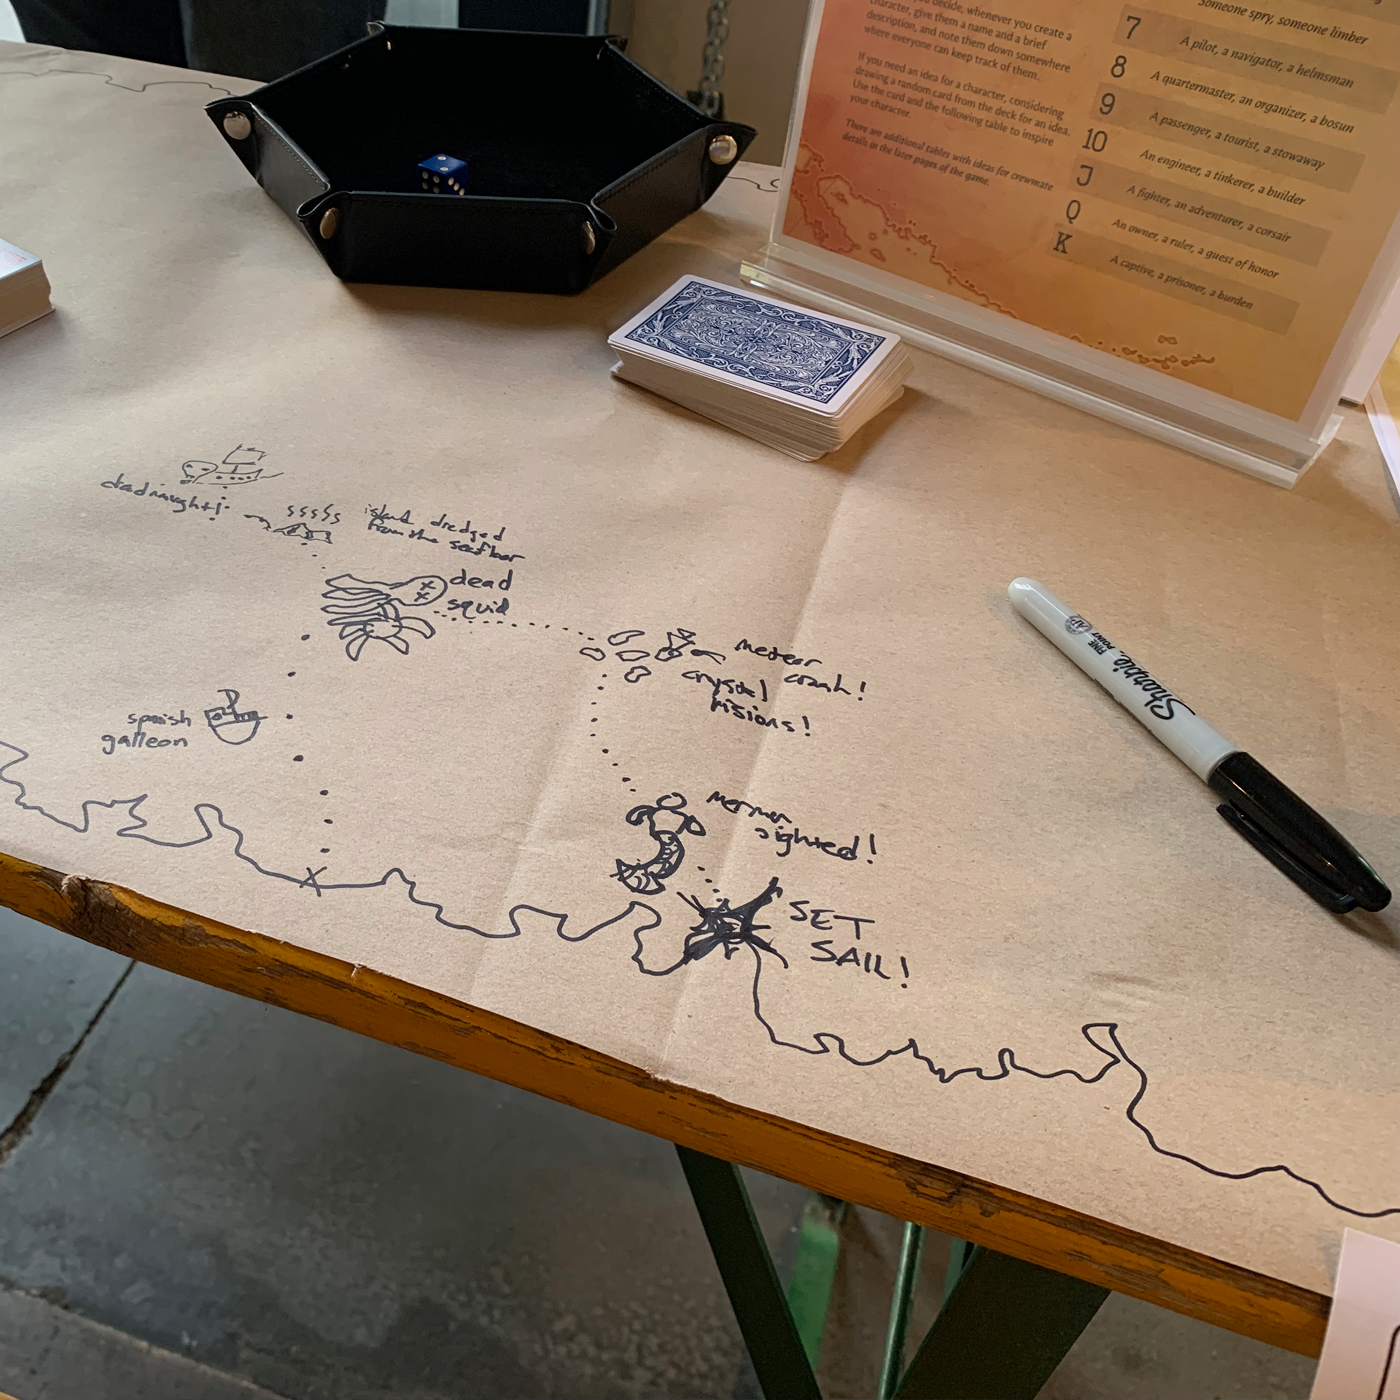 you decide, whenever you create a
character, give them a name and a brief
description, and note them down somewhere
where everyone can keep track of them.
If you need an idea for a character, considering
drawing a random card from the deck for an idea.
Use the card and the following table to inspire
your character.
There are additional tables with ideas for crewmate
details in the later pages of the game.
Someone spry, someone limber
7 A pilot, a navigator, a helmsman
8 A quartermaster, an organizer, a bosun
9 A passenger, a tourist, a stowaway
10 An engineer, a tinkerer, a builder
J A fighter, an adventurer, a corsair
Q An owner, a ruler, a guest of honor
K A captive, a prisoner, a burden
deadnaught!
island dredged
from the seafloor
dead
squid
meteor
crash!
crystal
visions!
spanish
galleon
merman
sighted!
SET
SAIL!
Sharpie
FINE
POINT
AP